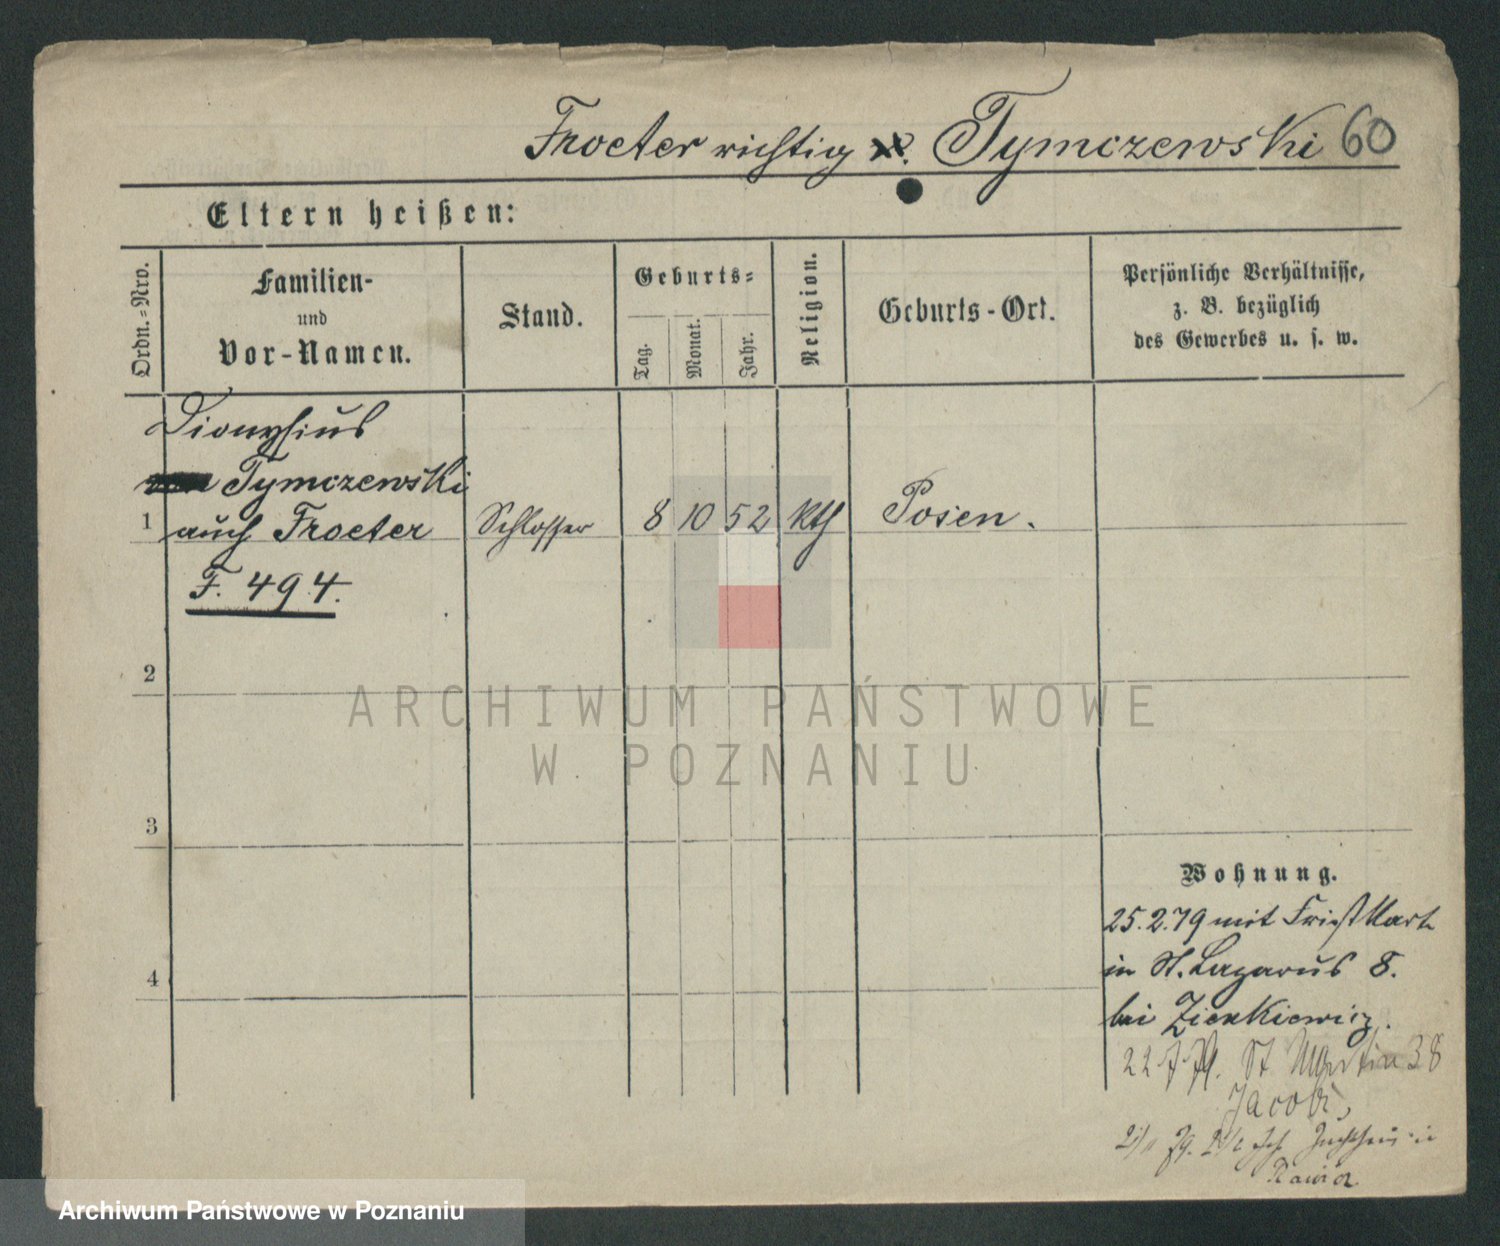 Froeter richtig v. Tymczewski 60
Eltern heißen:
Ordn.-Nro.
Familien-
und
Vor-Namen.
Stand.
Geburts-
Tag.
Monat.
Jahr.
Religion.
Geburts-Ort.
Persönliche Verhältnisse,
z. B. bezüglich
des Gewerbes u. s. w.
Dionysius
Tymczewski
1 auch Froeter Schlosser 8 10 52 kth Posen.
F. 494.
2
3
4
ARCHIWUM PAŃSTWOWE
W POZNANIU
Wohnung.
25.2.79 mit
in St. Lazarus 8.
bei Zienkiewicz.
22 7 79. St Martin 38
Jacobi,
Zuchthaus in
Rawicz
Archiwum Państwowe w Poznaniu